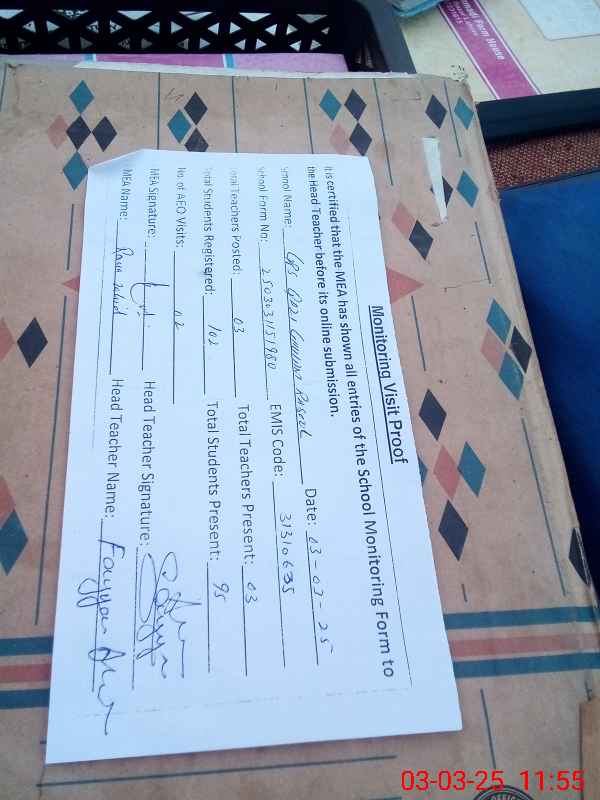 Monitoring Visit Proof
It is certified that the MEA has shown all entries of the School Monitoring Form to
the Head Teacher before its online submission.
School Name: GPS Qazi Ghulam Rasool Date: 03-03-25
School Form No: 2503031151980 EMIS Code: 31310635
Total Teachers Posted: 03 Total Teachers Present: 03
Total Students Registered: 102 Total Students Present: 95
No. of AEO Visits: 02
MEA Signature: Head Teacher Signature:
MEA Name: Head Teacher Name: Fayyaz
Farm House
03-03-25 11:55